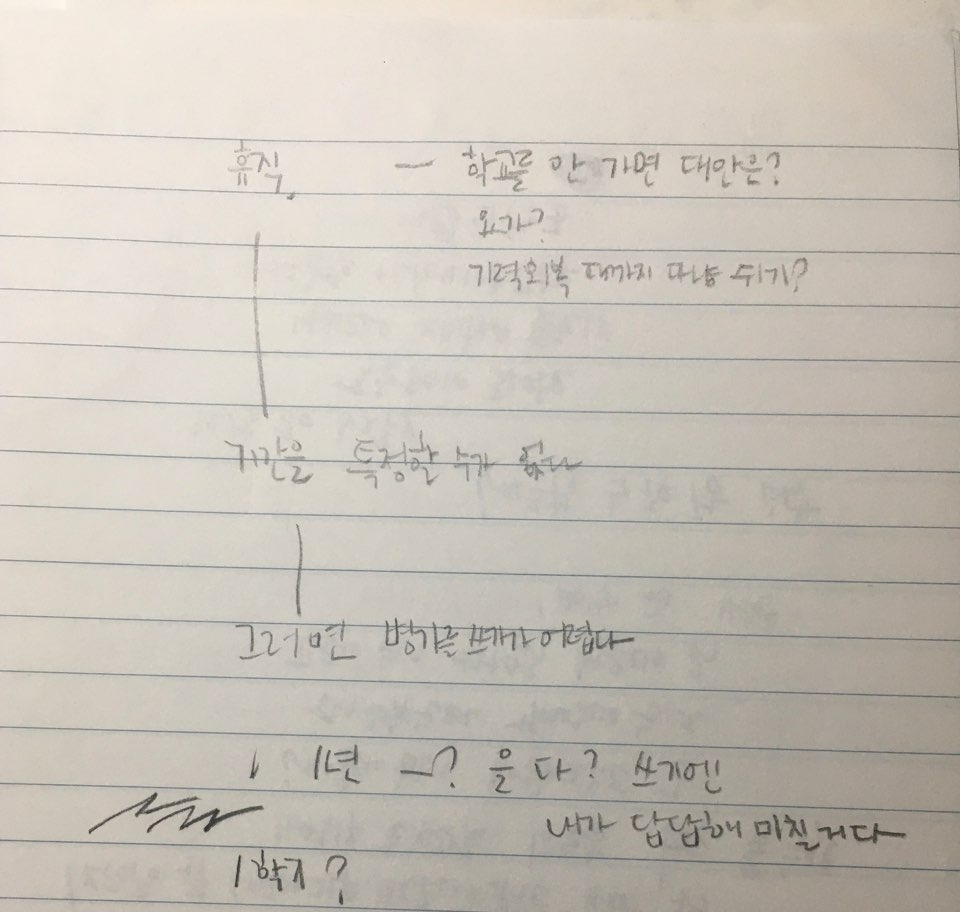 휴직. — 학교를 안 가면 대안은?
요가?
기력회복 때까지 마냥 쉬기?
기간을 특정할 수가 없다
그러면 병가를 쓰기가 어렵다
1년 ~? 을 다? 쓰기엔
내가 답답해 미칠거다
1학기?